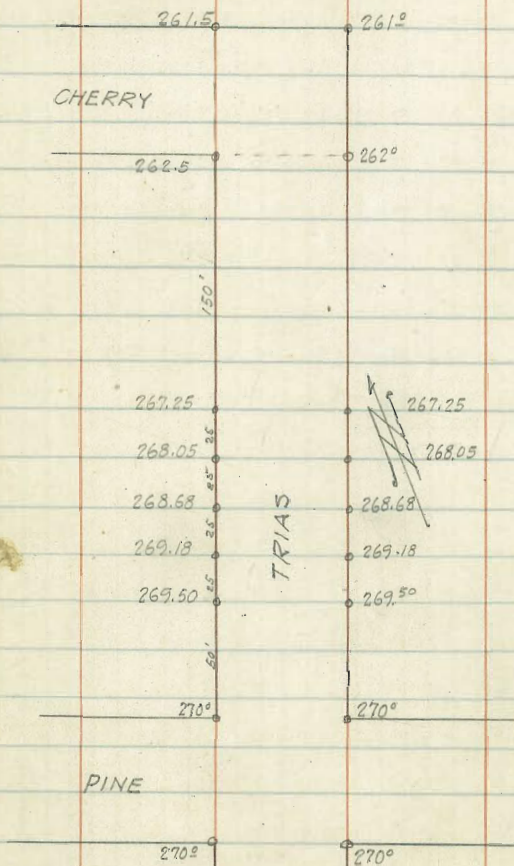 261.5 261⁰
CHERRY
262.5 262⁰
150'
267.25 267.25
25
268.05 268.05
25
268.68 268.68
25
TRIAS
269.18 269.18
25
269.50 269.⁵⁰
50'
270⁰ 270⁰
PINE
270⁰ 270⁰